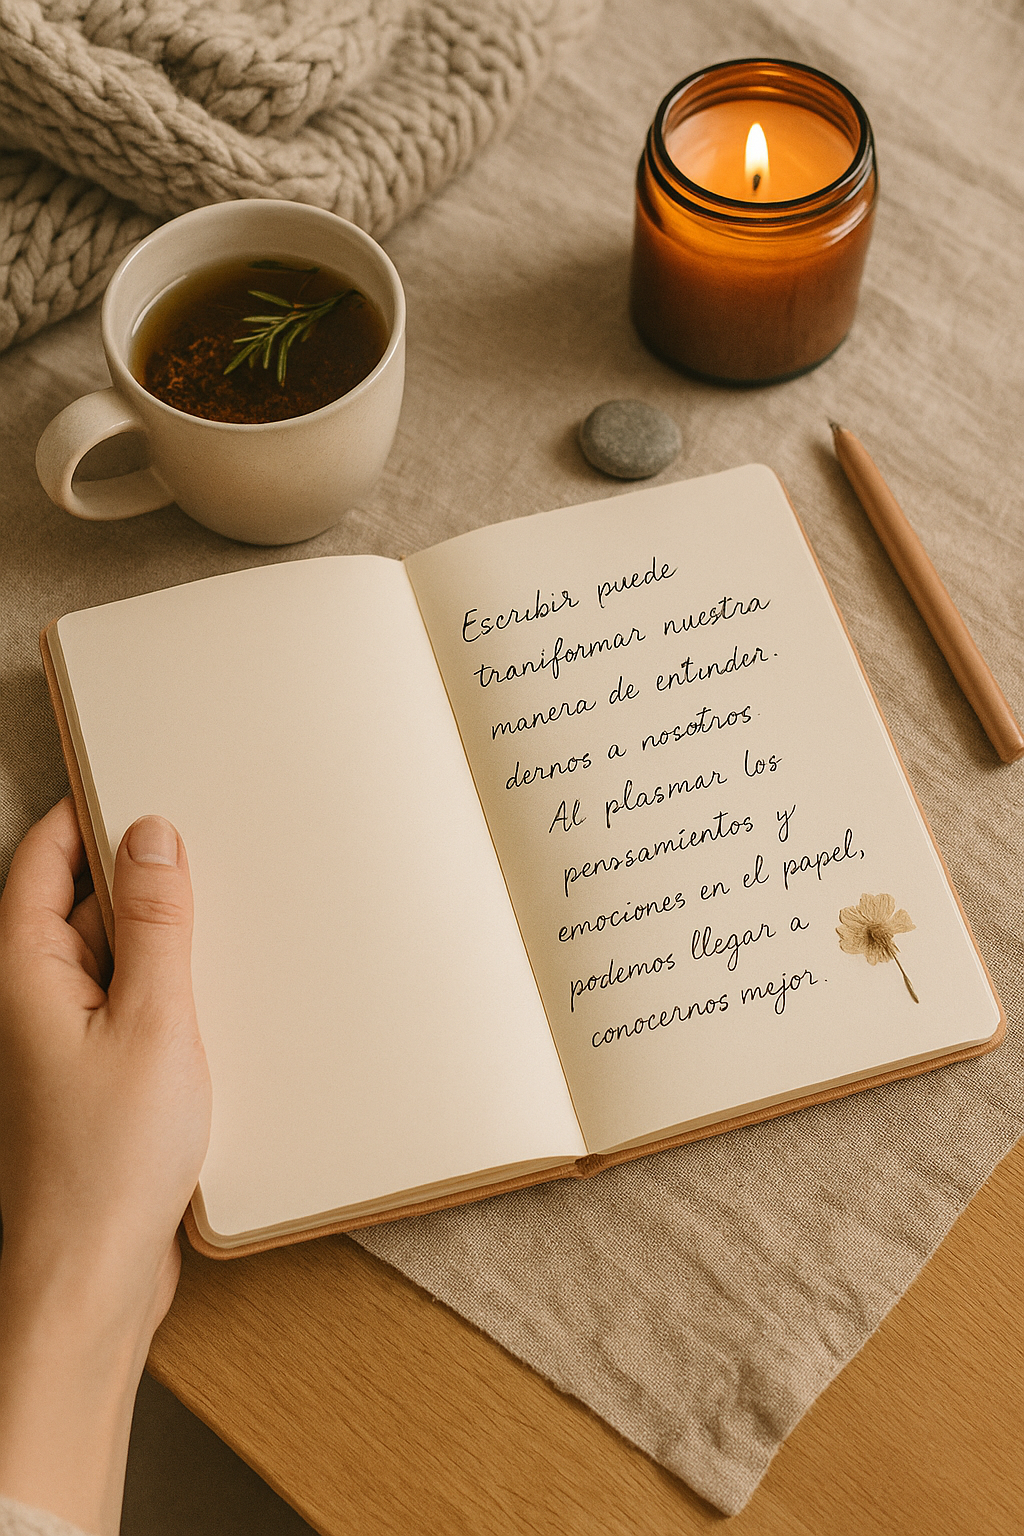 Escribir puede
traniformar nuestra
manera de entınder.
dernos a nosotros.
Al plasmar los
penssamientos y
emociones en el papel,
podemos llegar a
conocernos mejor.